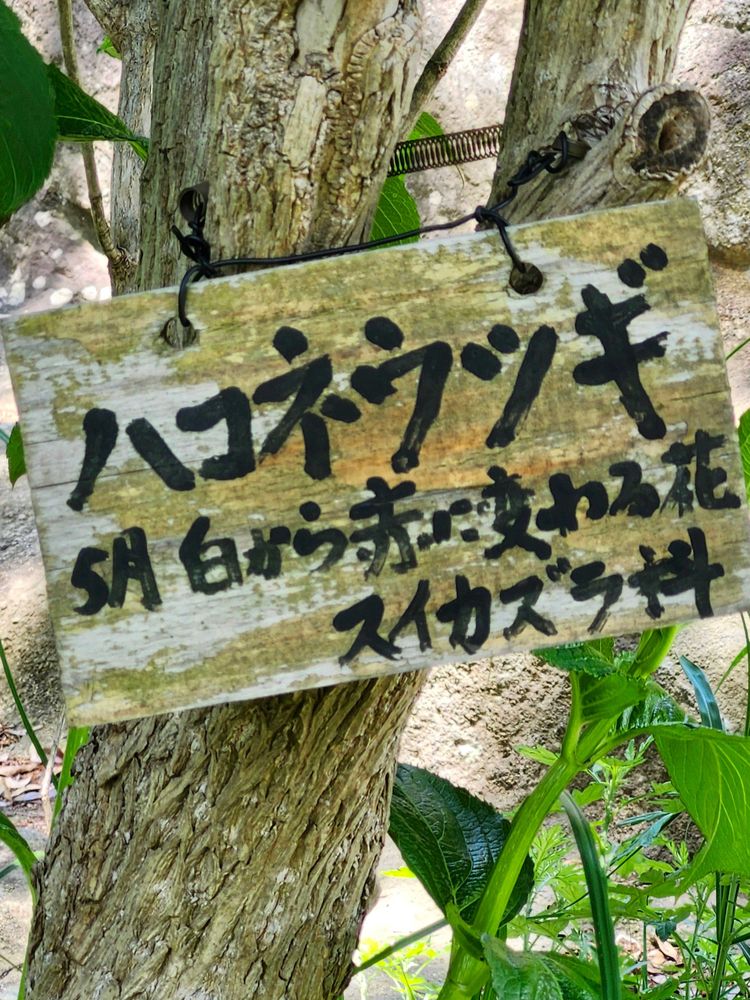 ハコネウツギ
5月 白から赤に変わる花
スイカズラ科